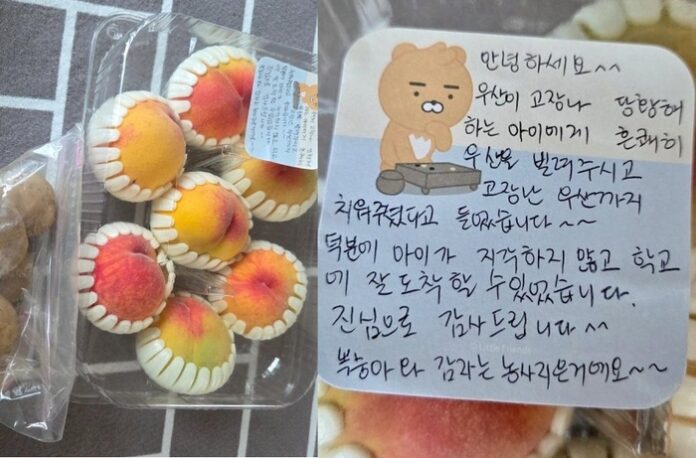 안녕하세요^^
우산이 고장나 당황해
하는 아이에게 흔쾌히
우산을 빌려주시고
고장난 우산까지
치워주셨다고 들었습니다~~
덕분에 아이가 지각하지 않고 학교
에 잘 도착할 수 있었습니다.
진심으로 감사드립니다^^
복숭아와 감자는 농사지은거예요~~